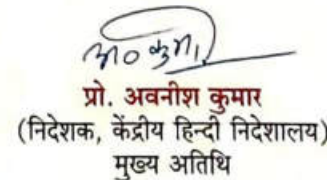 अ० कुमार
प्रो. अवनीश कुमार
(निदेशक, केंद्रीय हिन्दी निदेशालय)
मुख्य अतिथि